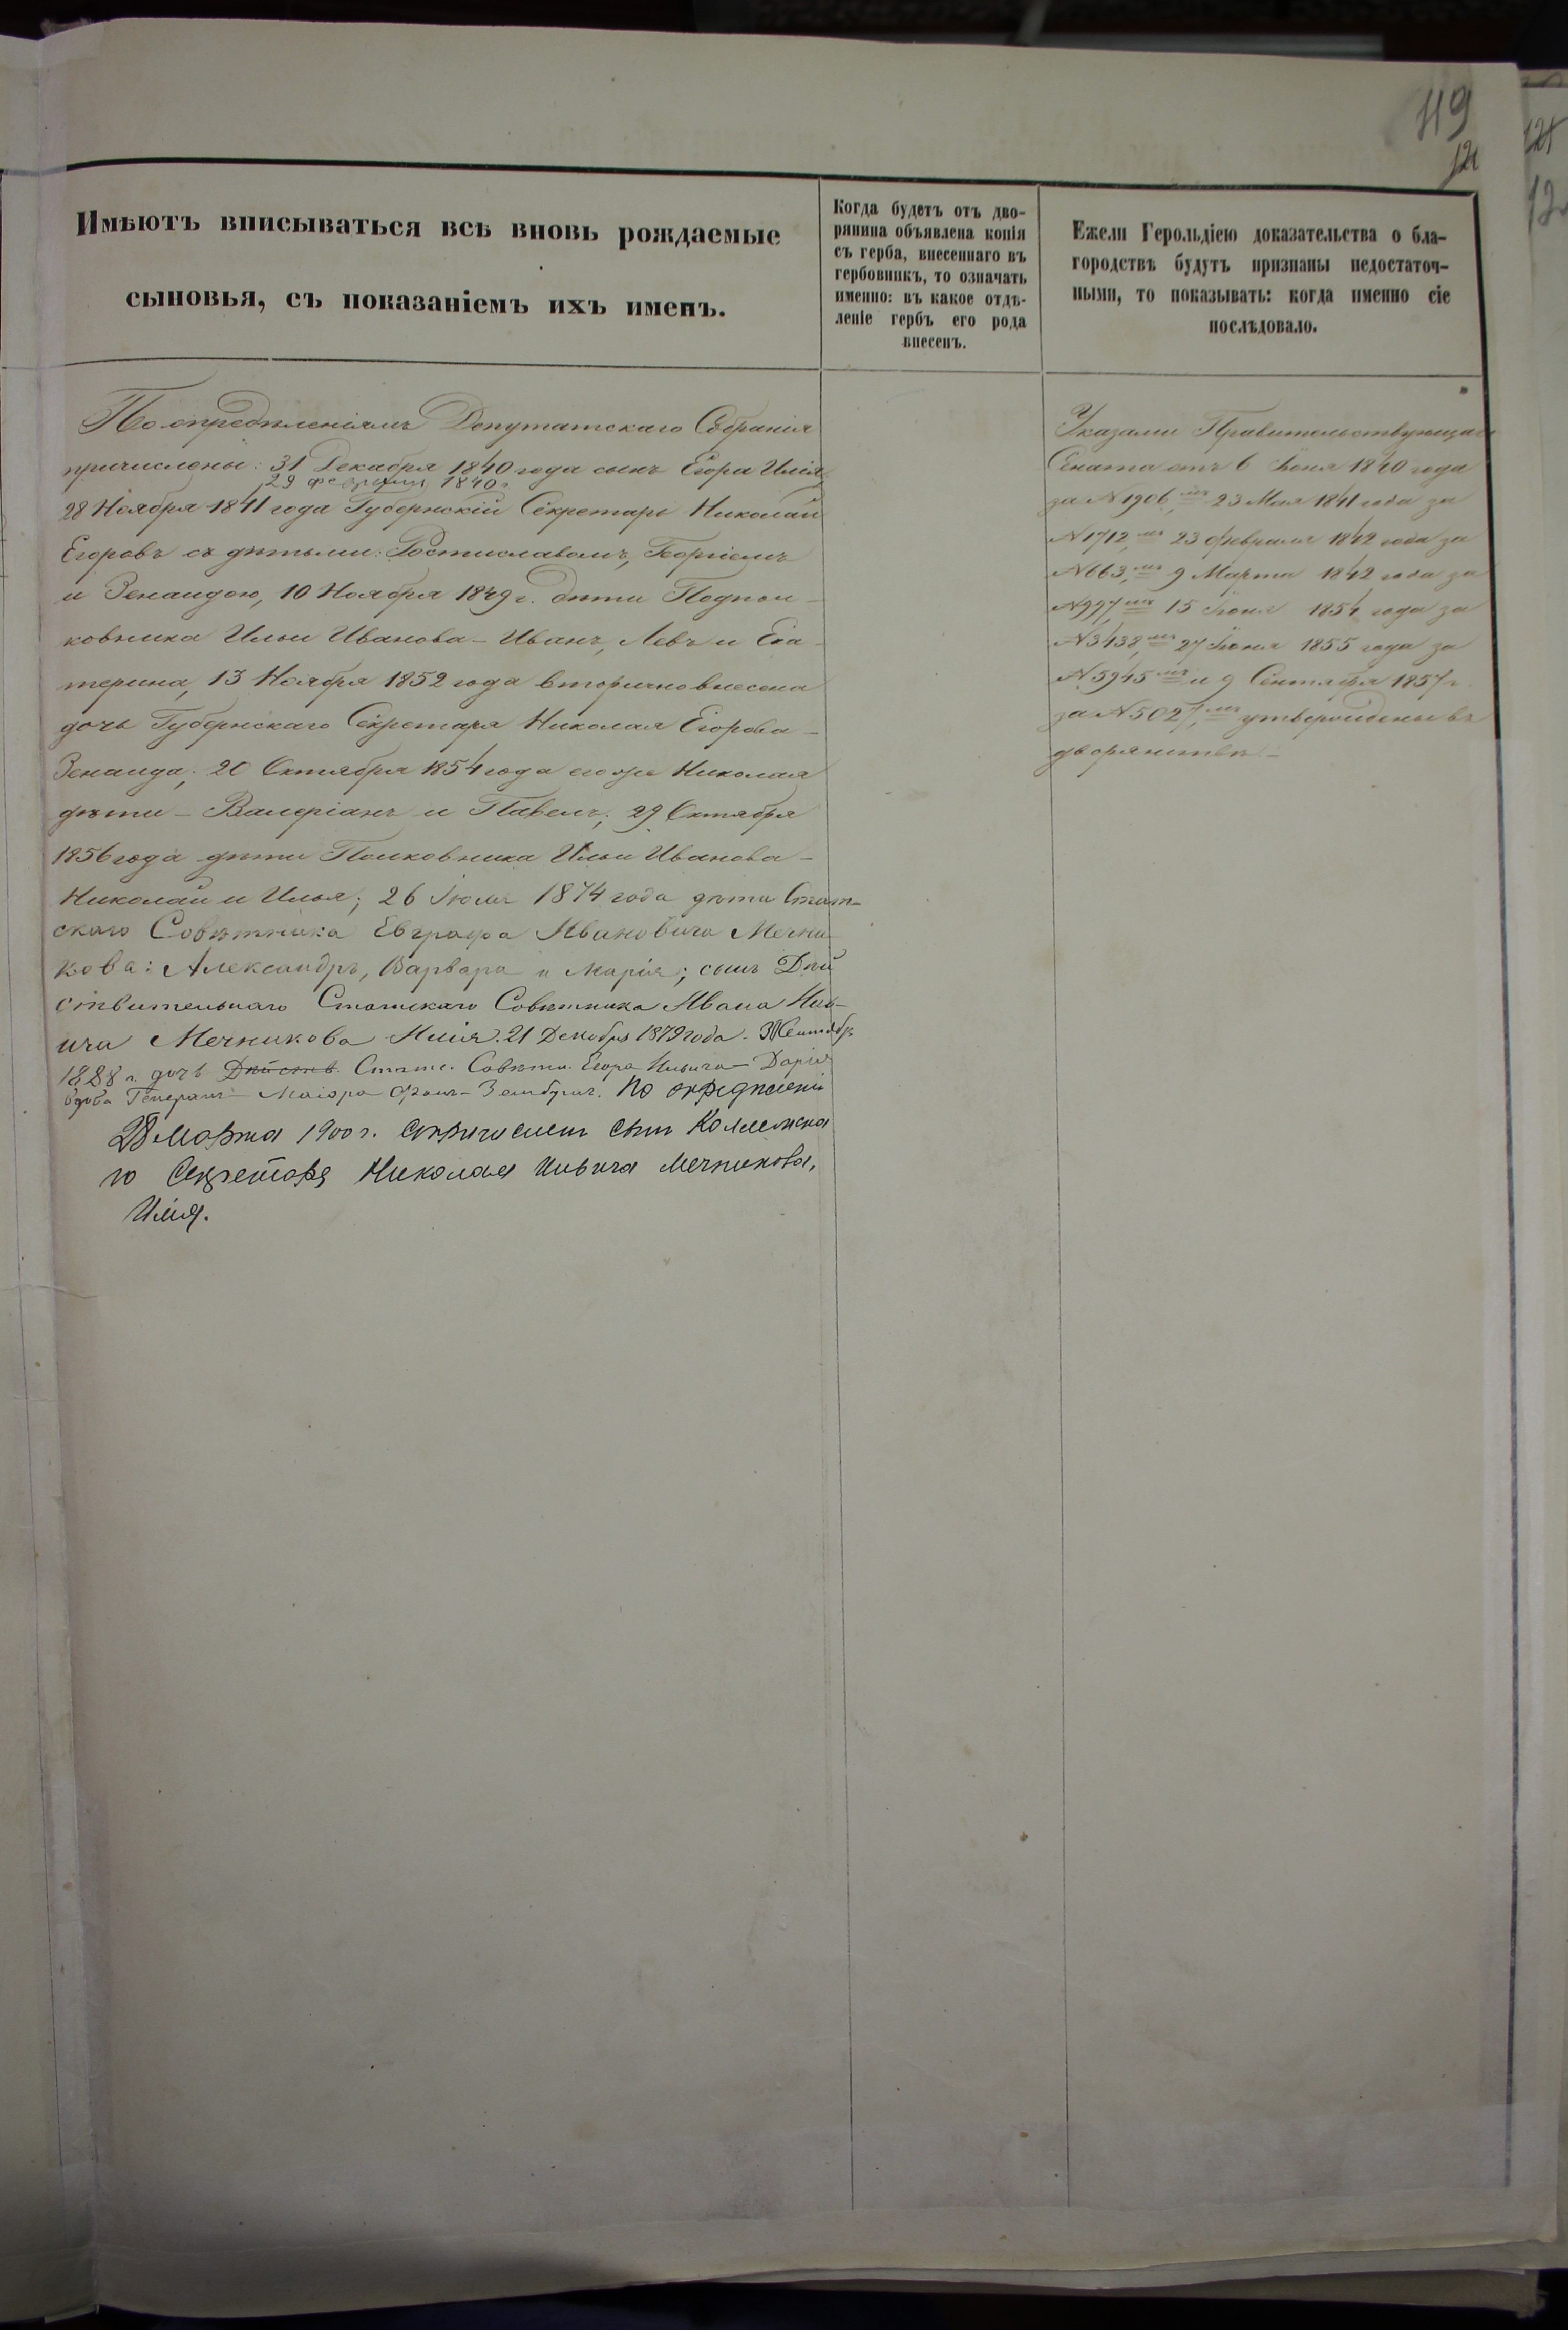 119
121
Имѣютъ вписываться всѣ вновь рождаемые
сыновья, съ показаніемъ ихъ именъ.
Когда будетъ отъ дво-
рянина объявлена копія
съ герба, внесеннаго въ
гербовникъ, то означать
именно: въ какое отдѣ-
леніе гербъ его рода
внесенъ.
Ежели Герольдіею доказательства о бла-
городствѣ будутъ признаны недостаточ-
ными, то показывать: когда именно сіе
послѣдовало.
По опредѣленіямъ Депутатскаго Собранія
причислены: 31 Декабря 1840 года сынъ Егора Илія
29 февраля 1840 г.
28 Ноября 1841 года Губернскій Секретарь Николай
Егоровъ съ дѣтьми: Ростиславомъ, Георгіемъ
и Зенаидою, 10 Ноября 1849 г. дѣти Подпол-
ковника Ильи Иванова - Иванъ, Левъ и Ека-
терина, 13 Ноября 1852 года вторично внесена
дочь Губернскаго Секретаря Николая Егорова -
Зенаида; 20 Октября 1854 года его же Николая
дѣти - Валеріанъ и Павелъ; 29 Октября
1856 года дѣти Полковника Ильи Иванова -
Николай и Илья; 26 Іюля 1874 года дѣти Стат-
скаго Совѣтника Евграфа Ивановича Мечни-
кова: Александръ, Варвара и Марія; сынъ Дѣй
ствительнаго Статскаго Совѣтника Ивана Иль-
ича Мечникова Илія. 21 Декабря 1879 года. Сентябр
1888 г. дочь Дѣйств. Статс. Совѣтн. Егора Ильича - Дарія
вдова Генералъ - Маіора фонъ-Зембушъ. По опредѣленію
28 Марта 1900 г. сопричисленъ сынъ Коллежска
го Секретаря Николая Ильича Мечникова,
Илія.
Указами Правительствующаго
Сената отъ 6 Іюня 1840 года
за N 1906, мъ 23 Мая 1841 года за
N 1712, мъ 23 февраля 1842 года за
N 663, мъ 9 Марта 1842 года за
N 997, мъ 15 Іюня 1854 года за
N 3438, мъ 27 Іюня 1855 года за
N 5945 мъ и 9 Сентября 1857 г.
за N 5027, мъ утверждены въ
дворянствѣ. -